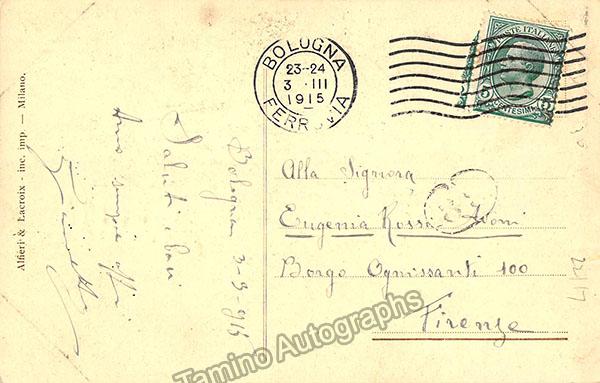 BOLOGNA
23-24
3 · III
1915
FERROVIA
POSTE ITALIANE
5 CENTESIMI 5
Alla Signora
Eugenia Rossi
Borgo Ognissanti 100
Firenze
Bologna 3-3-915
Saluti e baci
Alfieri & Lacroix - inc. imp. — Milano.
Tamino Autographs